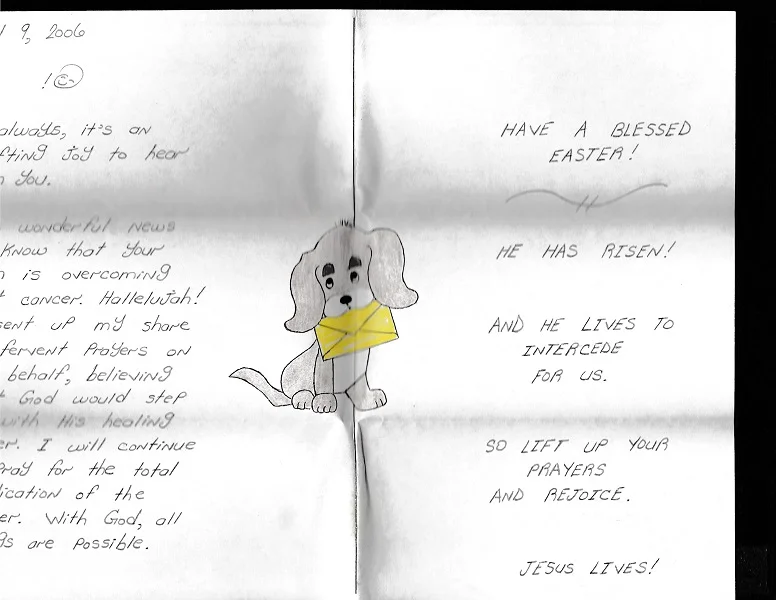 9, 2006
!
always, it's an
fting joy to hear
you.
wonderful news
know that your
is overcoming
cancer. Hallelujah!
sent up my share
fervent prayers on
behalf, believing
God would step
with His healing
er. I will continue
pray for the total
ication of the
er. With God, all
gs are possible.
HAVE A BLESSED
EASTER!
HE HAS RISEN!
AND HE LIVES TO
INTERCEDE
FOR US.
SO LIFT UP YOUR
PRAYERS
AND REJOICE.
JESUS LIVES!